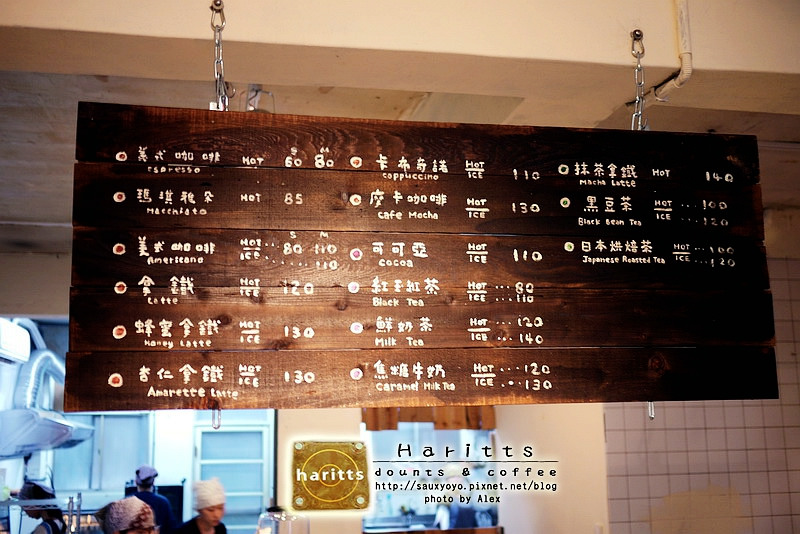 S M
美式咖啡 HOT 60 80
espresso
瑪琪雅朵 HOT 85
Macchiato
S M
美式咖啡 HOT ... 80 110
Americano ICE ... 110
拿鐵 HOT ICE 120
Latte
蜂蜜拿鐵 HOT ICE 130
Honey Latte
杏仁拿鐵 HOT ICE 130
Amarette Latte
卡布奇諾 HOT ICE 110
cappuccino
摩卡咖啡 HOT ICE 130
Cafe Mocha
可可亞 HOT ICE 110
cocoa
紅玉紅茶 HOT ... 80
Black Tea ICE ... 110
鮮奶茶 HOT ... 120
Milk Tea ICE ... 140
焦糖牛奶 HOT ... 120
Caramel Milk Tea ICE ... 130
抹茶拿鐵 HOT 140
Macha Latte
黑豆茶 HOT ... 100
Black Bean Tea ICE ... 120
日本烘焙茶 HOT ... 100
Japanese Roasted Tea ICE ... 120
haritts
Haritts
dounts & coffee
http://sauxyoyo.pixnet.net/blog
photo by Alex